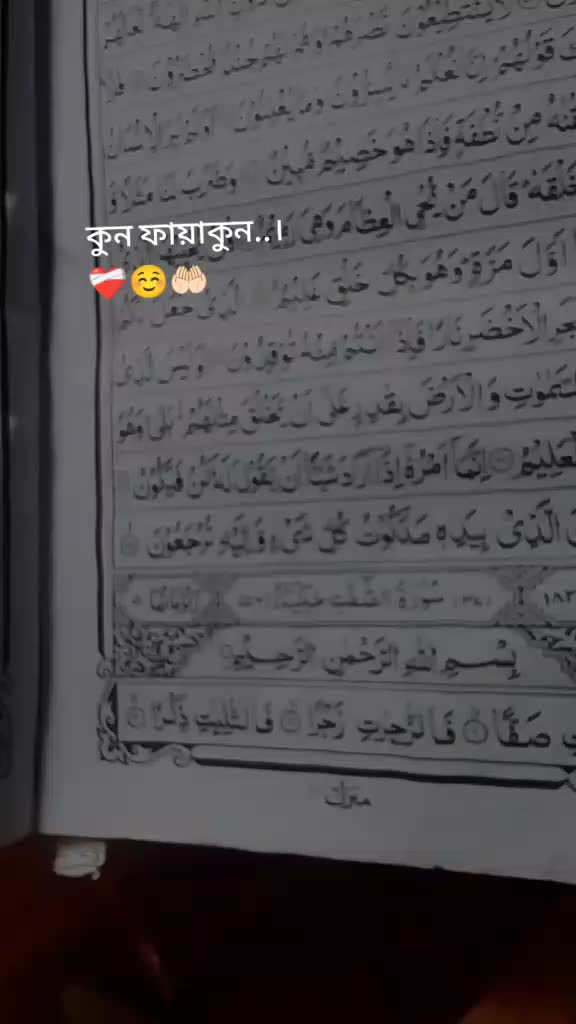 لَا يَسْتَطِيْعُوْنَ نَصْرَهُمْ وَهُمْ لَهُمْ جُنْدٌ مُّحْضَرُوْنَ فَلَا
قَوْلُهُمْ اِنَّا نَعْلَمُ مَا يُسِرُّوْنَ وَمَا يُعْلِنُوْنَ اَوَلَمْ يَرَ الْاِنْسَانُ
مِنْ نُّطْفَةٍ فَاِذَا هُوَ خَصِيْمٌ مُّبِيْنٌ وَضَرَبَ لَنَا مَثَلًا وَّ
خَلْقَهٗ قَالَ مَنْ يُّحْيِ الْعِظَامَ وَهِيَ
কুন ফায়াকুন..।
❤️‍🩹☺️🤲🏻
اَوَّلَ مَرَّةٍ وَهُوَ بِكُلِّ خَلْقٍ عَلِيْمٌ الَّذِيْ جَعَلَ لَكُمْ
الْاَخْضَرِ نَارًا فَاِذَا اَنْتُمْ مِّنْهُ تُوْقِدُوْنَ اَوَلَيْسَ الَّذِيْ
السَّمٰوٰتِ وَالْاَرْضَ بِقٰدِرٍ عَلٰى اَنْ يَّخْلُقَ مِثْلَهُمْ بَلٰى وَهُوَ
الْعَلِيْمُ اِنَّمَا اَمْرُهٗ اِذَا اَرَادَ شَيْئًا اَنْ يَّقُوْلَ لَهٗ كُنْ فَيَكُوْنُ
الَّذِيْ بِيَدِهٖ مَلَكُوْتُ كُلِّ شَيْءٍ وَّاِلَيْهِ تُرْجَعُوْنَ
سُوْرَةُ الصّٰفّٰتِ مَكِّيَّةٌ
بِسْمِ اللهِ الرَّحْمٰنِ الرَّحِيْمِ
صَفًّا فَالزّٰجِرٰتِ زَجْرًا فَالتّٰلِيٰتِ ذِكْرًا
منزل